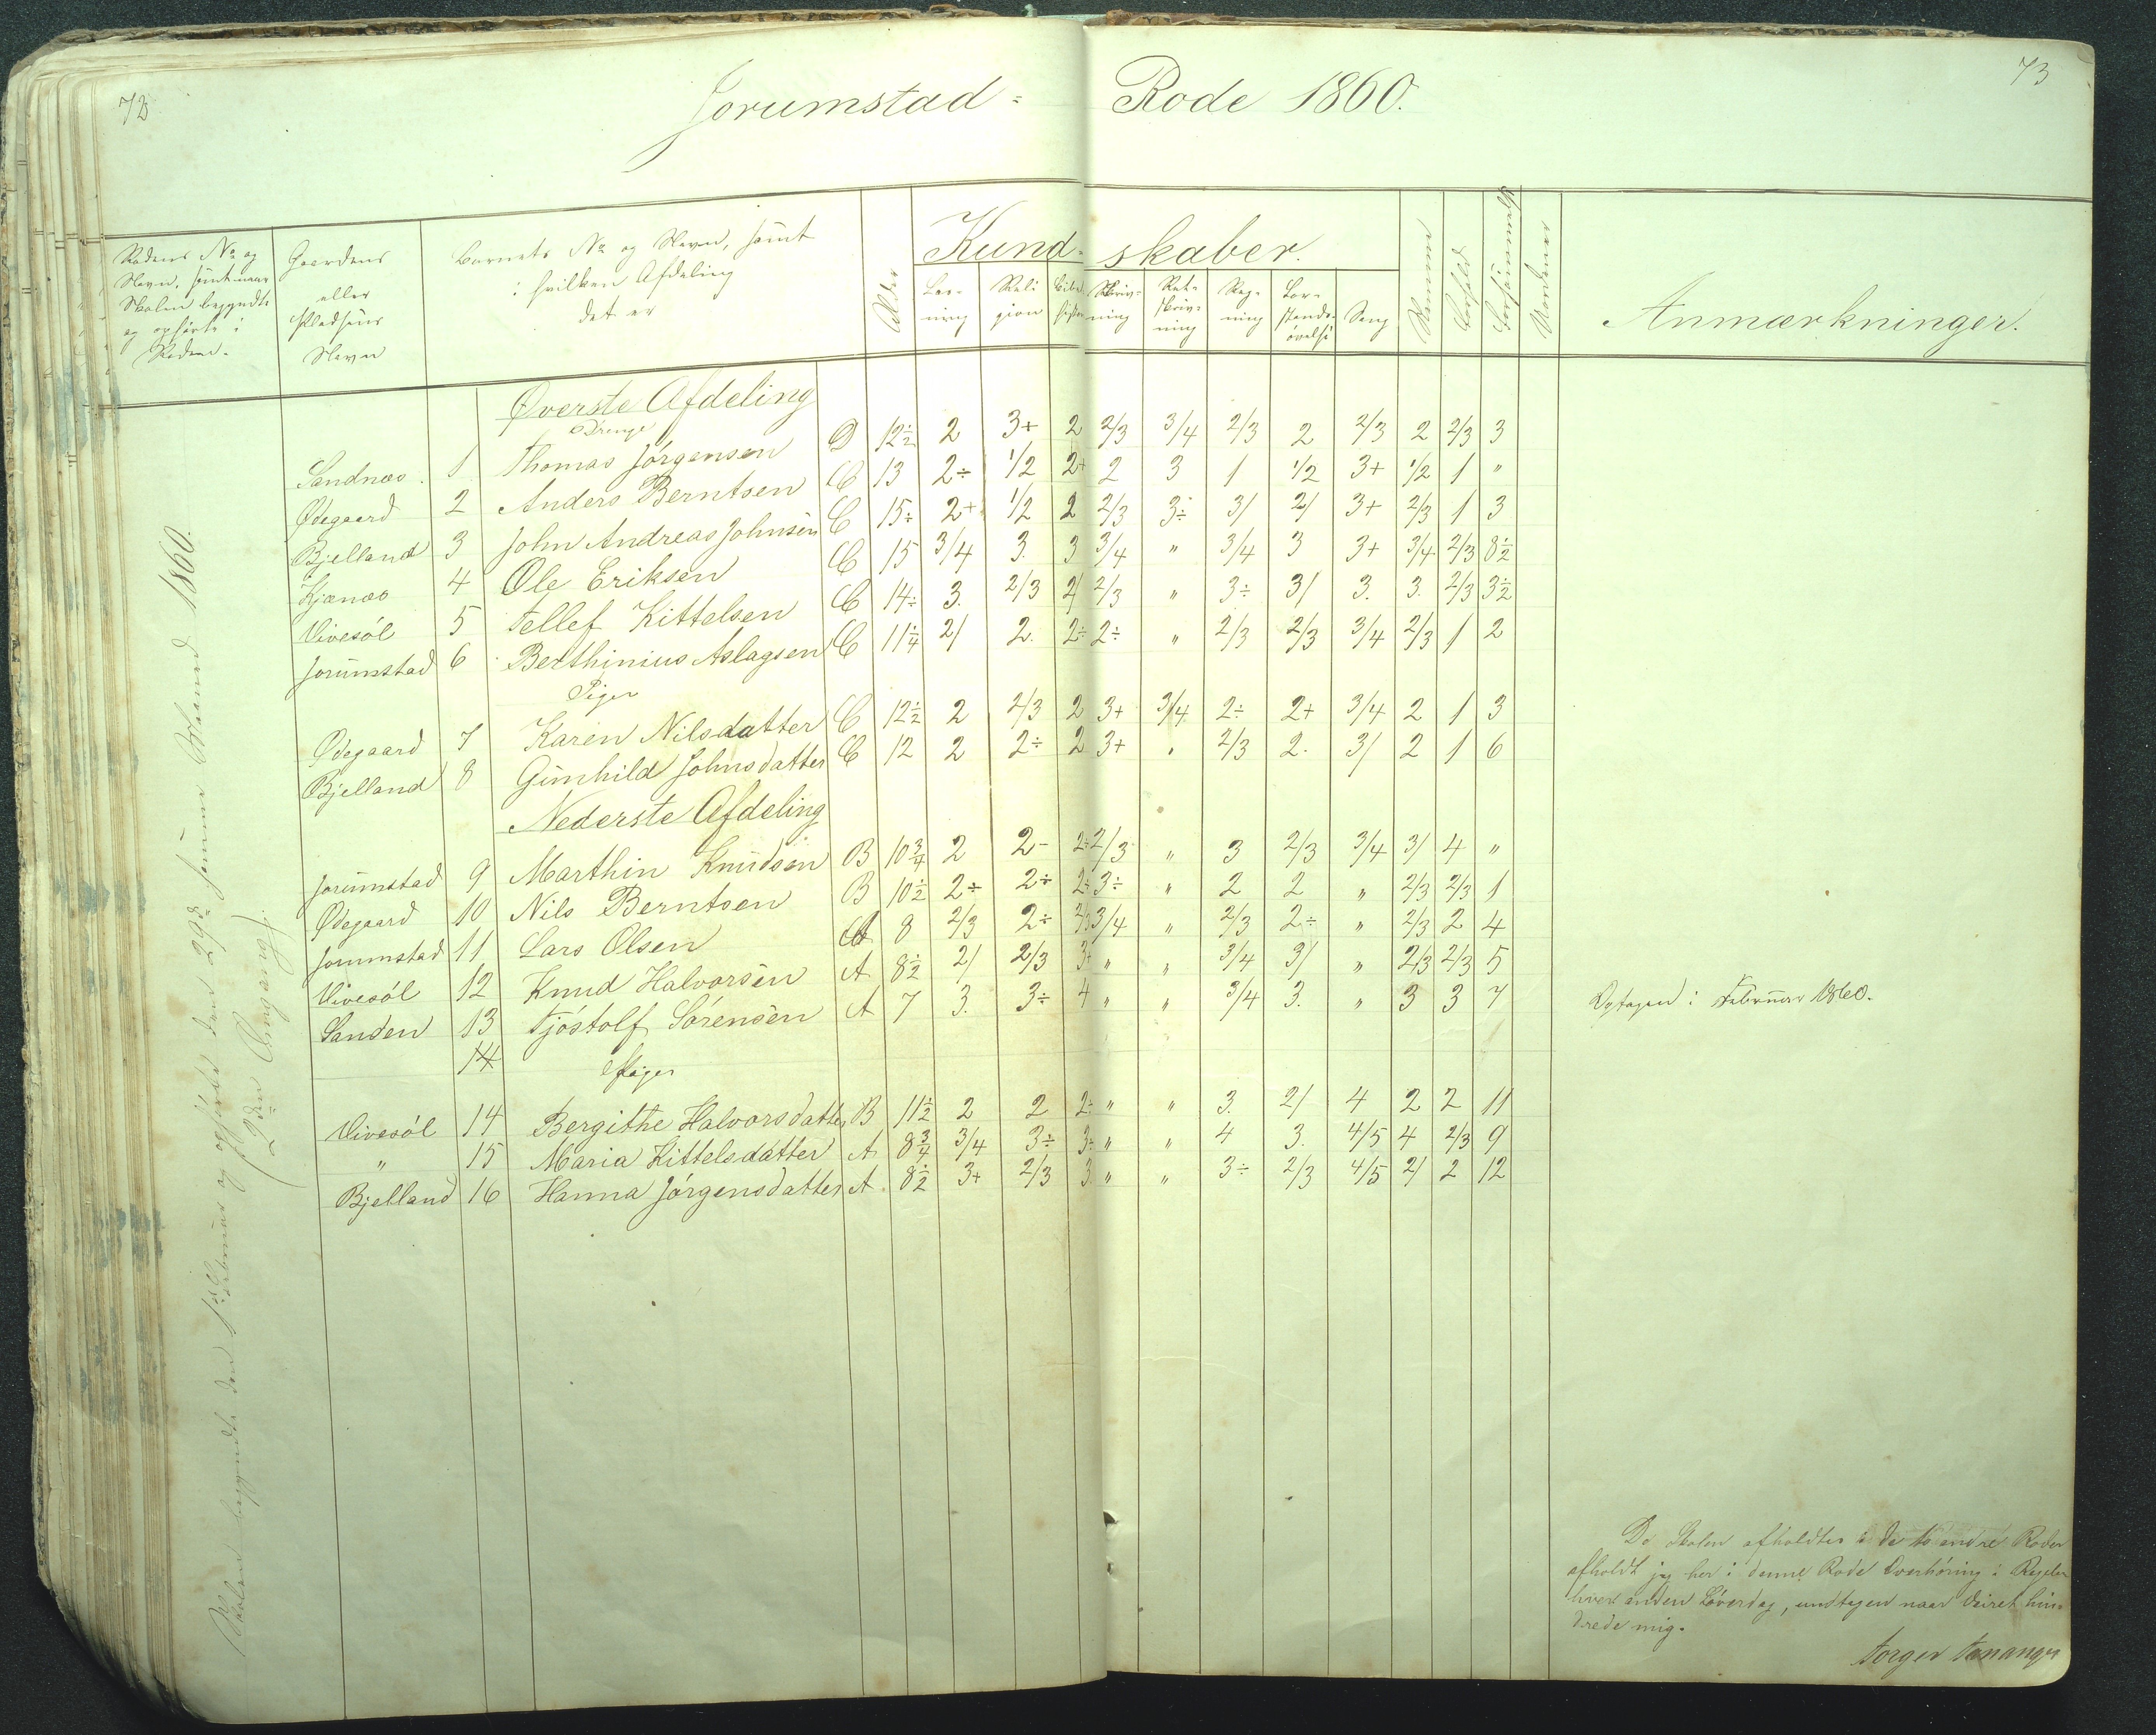 72
73
Jorumstad = Rode 1860.
Rodens No og Navn, samt naar Skolen begyndte og ophørte i Roden.
Gaardens eller Pladsens Navn
Barnets No og Navn, samt i hvilken Afdeling det er
Alder
Kund-skaber.
Læs-ning
Reli-gion
Bibel-histor
Skriv-ning
Ret-skriv-ning
Reg-ning
For-stands-øvelse
Sang
Nemme
Forhold
Forsømmelse
Anmærkninger.
Øverste Afdeling
Drenge
Sandnæs. 1 Thomas Jørgensen D 12½ 2 3+ 2 2/3 3/4 2/3 2 2/3 2 2/3 3
Ødegaard 2 Anders Berntsen C 13 2÷ 1/2 2+ 2 3 1 1/2 3+ 1/2 1 "
Bjelland 3 John Andreas Johnsen C 15÷ 2+ 1/2 2 2/3 3÷ 3/ 2/ 3+ 2/3 1 3
Kjænæs 4 Ole Eriksen C 15 3/4 3. 3 3/4 " 3/4 3 3+ 3/4 2/3 8½
Vivesøl 5 Tellef Kittelsen C 14÷ 3. 2/3 2/ 2/3 " 3÷ 3/ 3. 3. 2/3 3½
Jorumstad 6 Berthinius Aslagsen C 11¼ 2/ 2. 2÷ 2÷ " 2/3 2/3 3/4 2/3 1 2
Piger
Ødegaard 7 Karen Nilsdatter C 12½ 2 2/3 2 3+ 3/4 2÷ 2+ 3/4 2 1 3
Bjelland 8 Gunhild Johnsdatter C 12 2 2÷ 2 3+ " 2/3 2. 3/ 2 1 6
Nederste Afdeling
Jorumstad 9 Marthin Knudsen B 10¾ 2 2- 2÷ 2/3 " 3 2/3 3/4 3/ 4 "
Ødegaard 10 Nils Berntsen B 10½ 2÷ 2÷ 2÷ 3÷ " 2 2 " 2/3 2/3 1
Jorumstad 11 Lars Olsen A 8 2/3 2÷ 2/3 3/4 " 2/3 2÷ " 2/3 2 4
Vivesøl 12 Knud Halvorsen A 8½ 2/ 2/3 3+ " " 3/4 3/ " 2/3 2/3 5
Sanden 13 Tjøstolf Sørensen A 7 3. 3÷ 4 " " 3/4 3. " 3 3 7 Optagen i Februar 1860.
14
Piger
Vivesøl 14 Bergithe Halvorsdatter B 11½ 2 2 2÷ " " 3. 2/ 4 2 2 11
" 15 Maria Kittelsdatter A 8¾ 3/4 3÷ 3÷ " " 4 3. 4/5 4 2/3 9
Bjelland 16 Hanna Jørgensdatter A 8½ 3+ 2/3 3 " " 3÷ 2/3 4/5 2/ 2 12
Skolen begyndte den 1ste Februar og ophørte den 29de samme Maaned 1860.
(2den Omgang).
Da Skolen afholdtes i de to andre Roder
afholdt jeg her i denne Rode Overhøring i Regelen
hver anden Løverdag, undtagen naar Veiret hin-
drede mig.
Torger Tananger